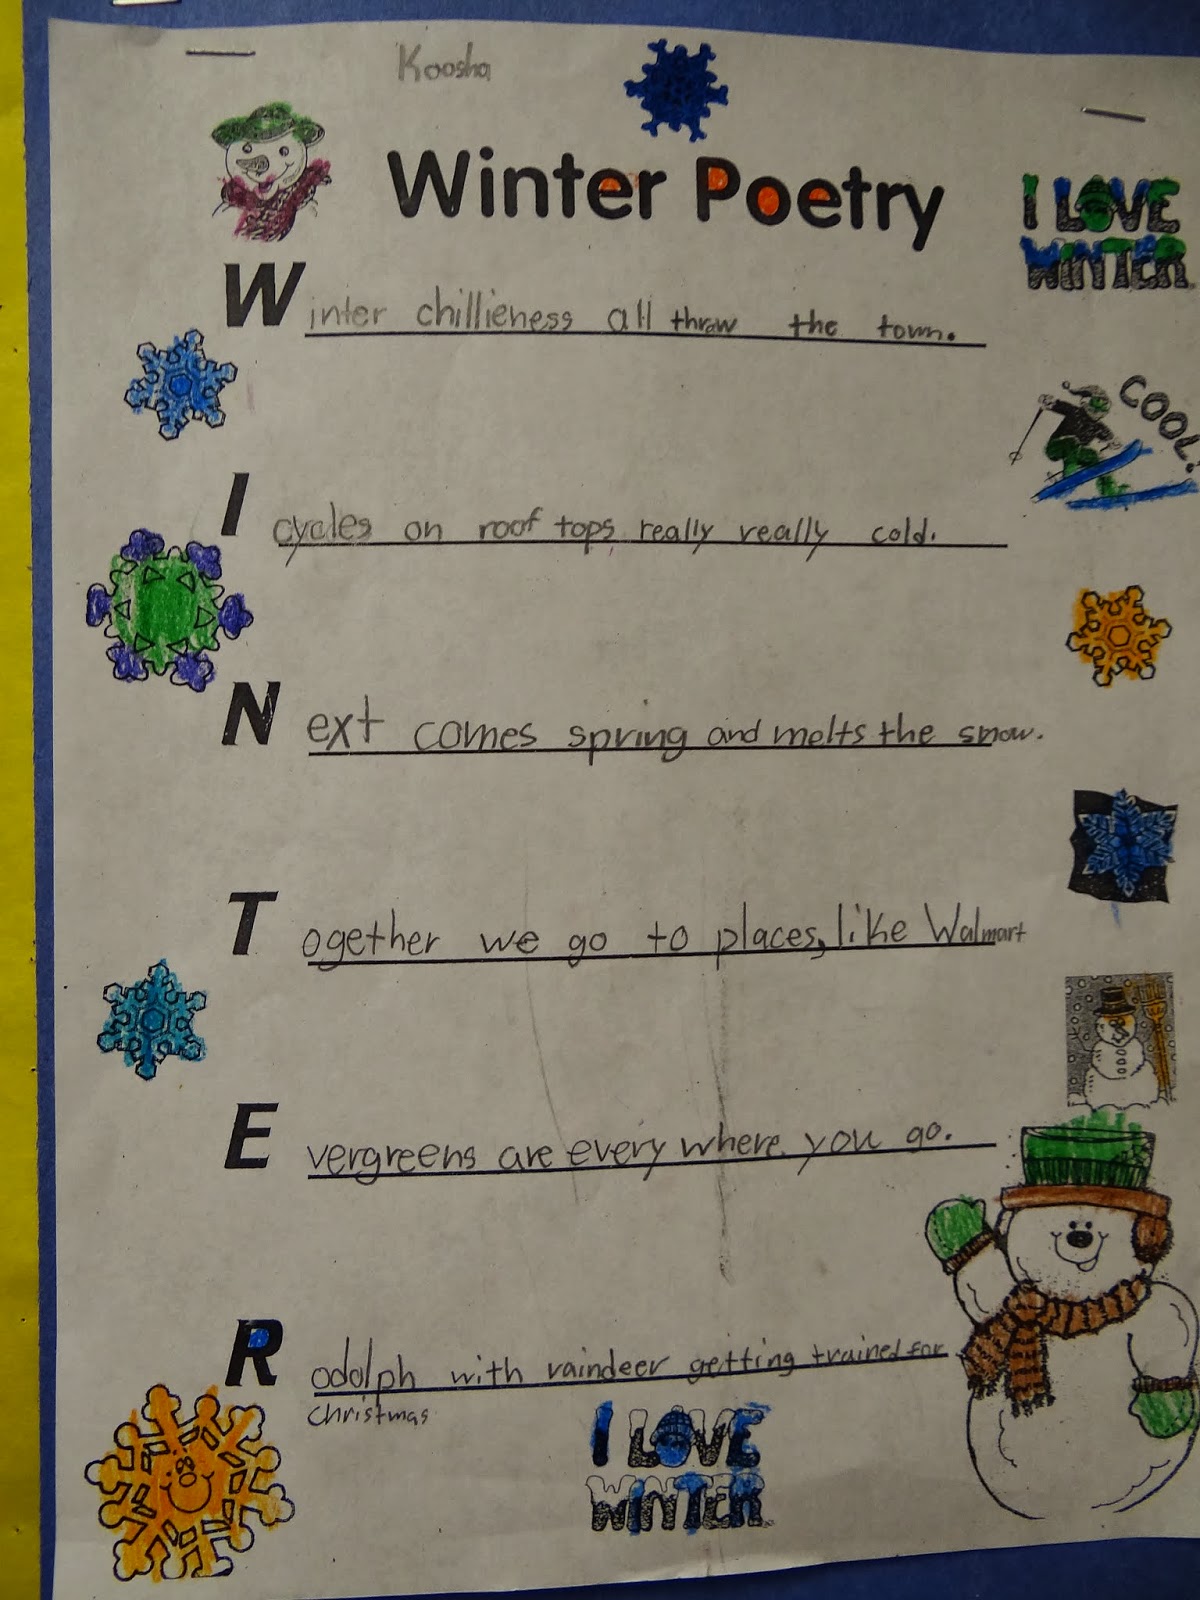 Koosha
Winter Poetry
I LOVE
WINTER
Winter chillieness all thraw the town.
COOL!
Icycles on roof tops really really cold.
Next comes spring and melts the snow.
Together we go to places, like Walmart
Evergreens are everywhere you go.
Rodolph with raindeer getting trained for
christmas
I LOVE
WINTER